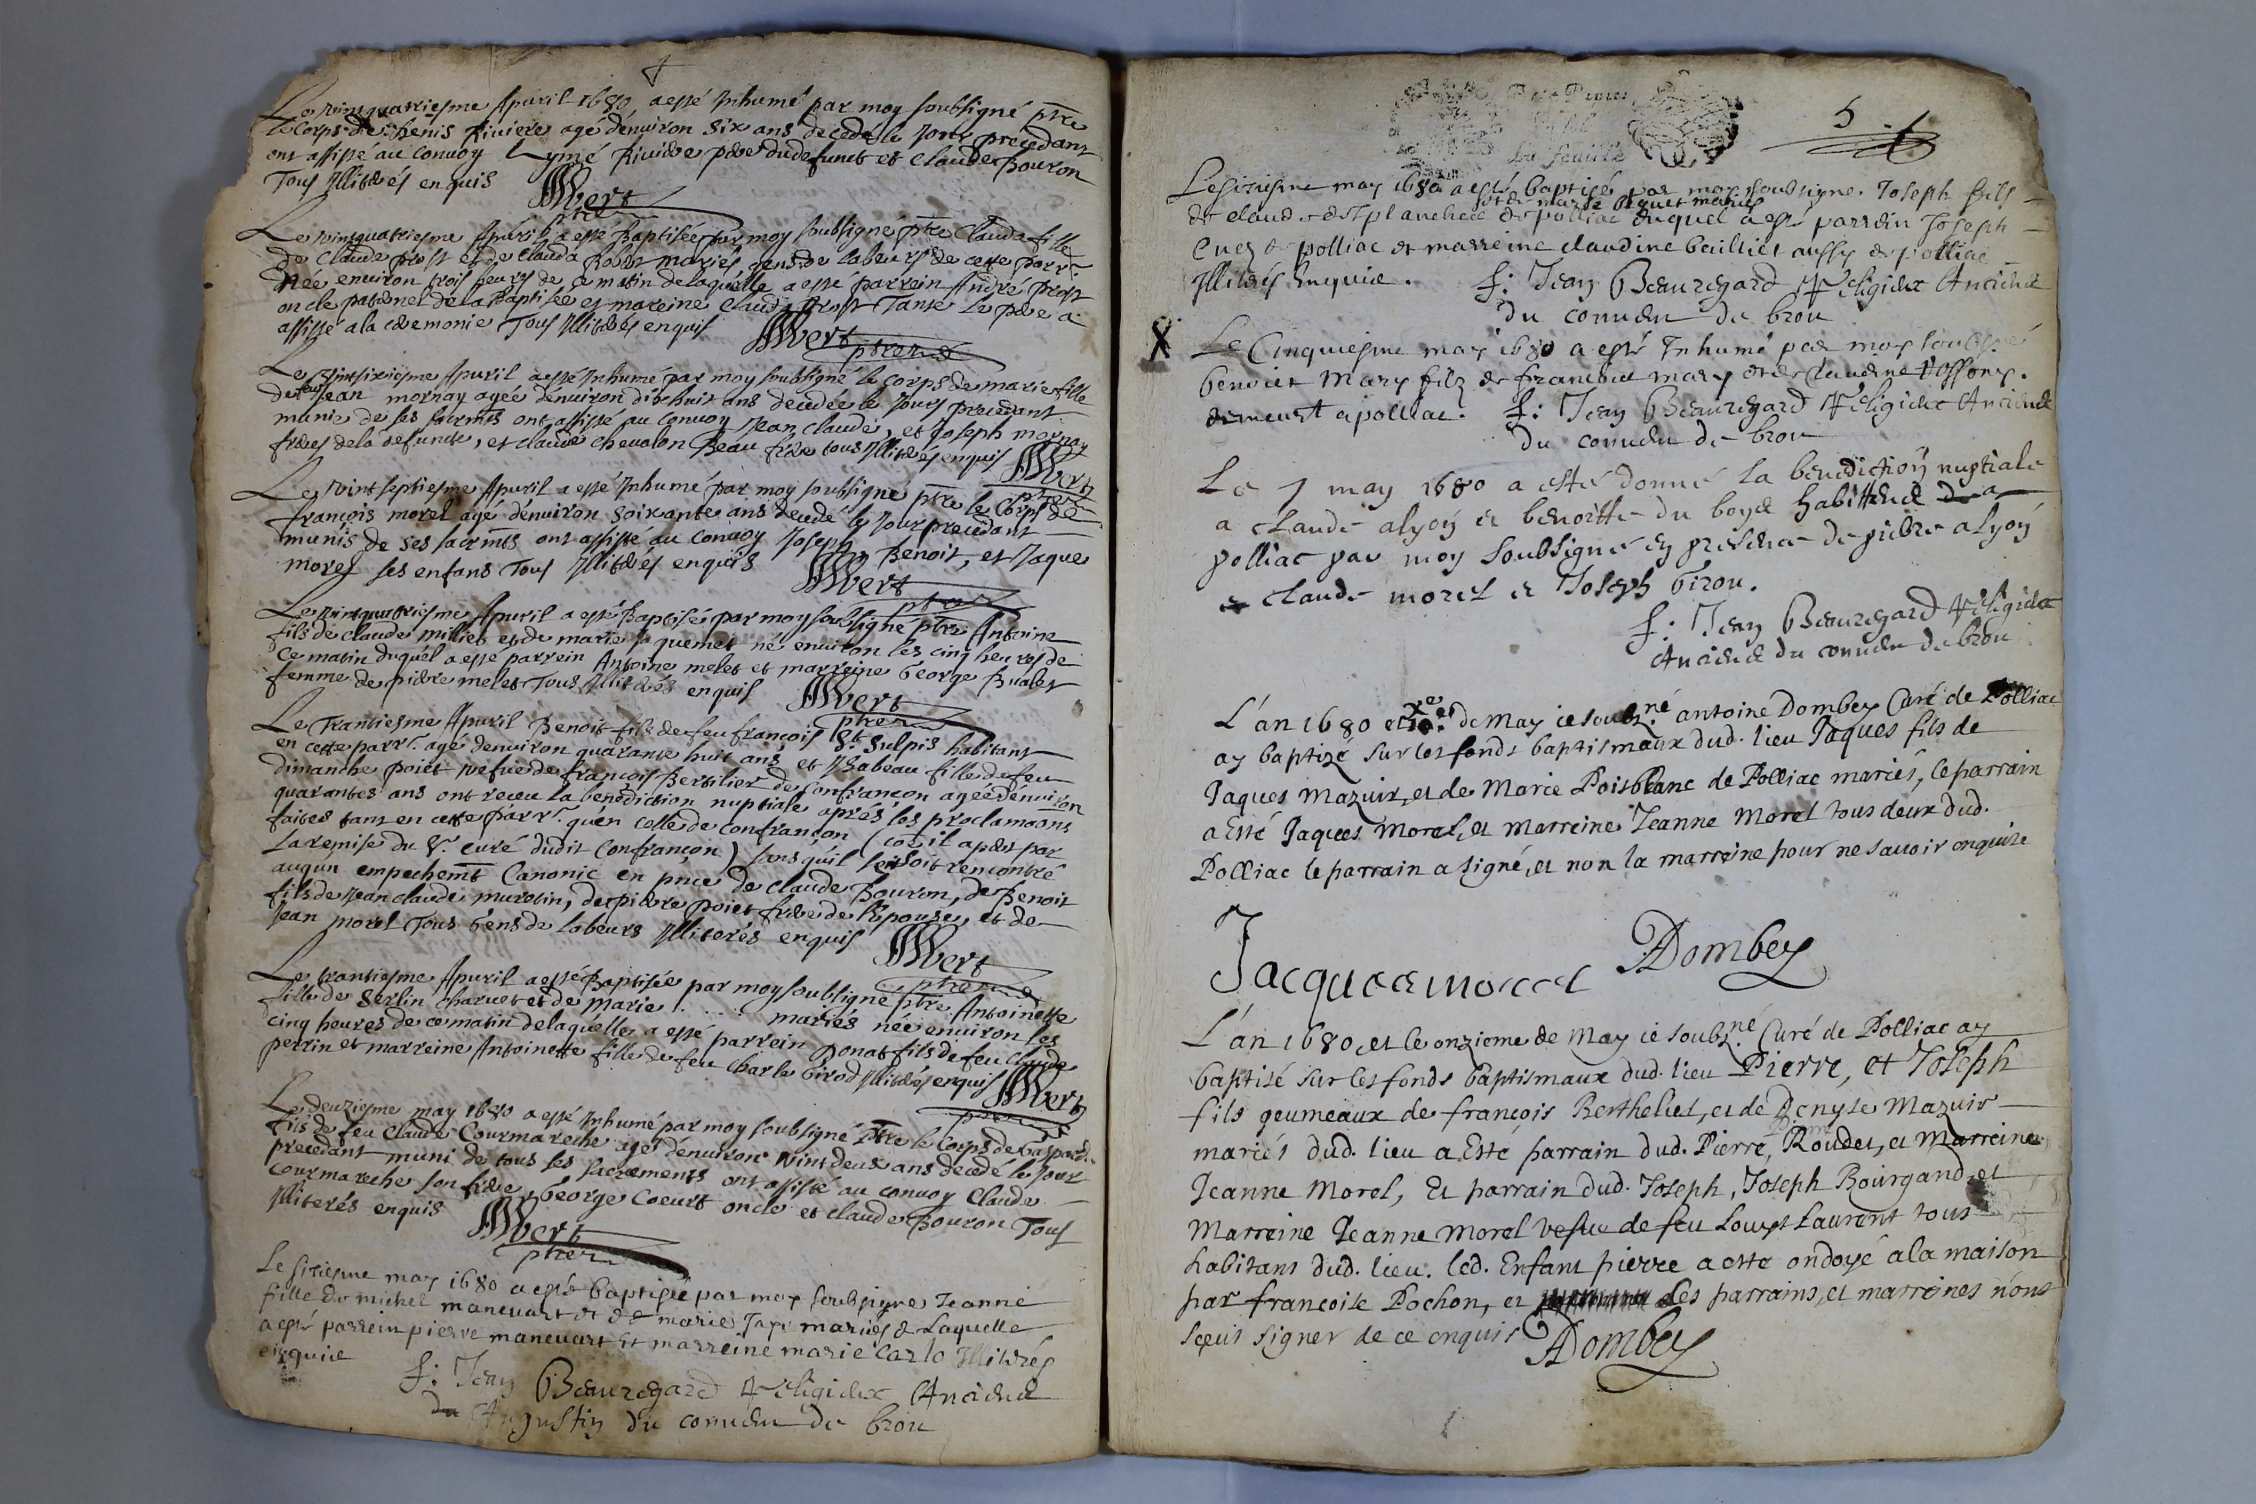 Le vintquatriesme Apuril 1680 a esté Inhumé par moy soubsigné ptre
le Corps de Denis Riviere agé d'enuiron six ans decedé le Jour précedant
ont assisté au Convoy Aymé Riviere pere du defunct et Claude Bouron
Tous Illiterés enquis MVert
ptre
Le vintquatriesme Apuril a esté Baptisée par moy soubsigné ptre Clauda fille
de Claude prost et de Clauda mariés gens de labeurs de cette parr.
Née enuiron trois heures de ce matin de laquelle a esté parrein André prost
oncle paternel de la Baptisée et mareine Clauda prost Tante le pere a
assisté a la ceremonie Tous Illiterés enquis MVert
ptre
Le vintsixiesme Apuril a esté Inhumé par moy soubsigné le corps de marie fille
de feu Jean mornay agée denuiron dixhuit ans decedée le Jours precedant
munie de ses sacrmts ont assisté au Convoy Jean claude, et Joseph mornay
freres de la defuncte, et claude chevalon Beau frere tous Illiterés enquis MVert
ptre
Le vintseptiesme Apuril a esté Inhumé par moy soubsigné ptre le Corps de
françois morel agé dénuiron soixante ans decedé le Jour precedant
munis de ses sacrmts ont assisté au convoy Joseph Benoit, et Jaque
morel ses enfans Tous Illiterés enquis MVert
ptre
Le vintquatriesme Apuril a esté Baptisé par moy soubsigné ptre Antoine
fils de claude milliet et de marie Jaquemet né enuiron les cinq heures de
ce matin duquel a esté parrein Antoine melet et marreine George Bualet
femme de pierre melet Tous Illiterés enquis MVert
ptre
Le Trantiesme Apuril Benoit fils de feu françois St. Sulpis habitant
en cette parr. agé denuiron quarante huit ans et Ysabeau fille de feu
dimanche poiet vefue de françois Bertilier de Confrançon agée dénuiron
quarantes ans ont receu la benediction nuptiale aprés les proclamaons
faites tant en cette parr. quen celle de confrançon (co il apert par
la remise du Sr. curé dudit Confrançon) sans quil se soit rencontré
augun empechemt Canonic en pnce de Claude Bouron, de Benoit
fils de Jean claude muretin, de pierre poiet frere de l'Epouse, et de
Jean morel Tous Gens de labeurs Illiterés enquis MVert
ptre
Le trantiesme Apuril a esté Baptisée par moy soubsigné ptre Antoinette
fille de Serlin charuet et de Marie . . . . mariés née enuiron les
cinq heures de ce matin de laquelle a esté parrein Donat fils de feu Claude
perrin et marreine Antoinette fille de feu Charle Girod Illiterés enquis MVert
ptre
Le deuziesme may 1680 a esté Inhumé par moy soubsigné Ptre le Corps de Gaspard
fils de feu Claude Courmareche agé dénuiron vint deux ans decedé le Jour
precedant muni de tous les sacrements ont assisté au convoy Claude
Courmareche son frere George Coeurt oncle et claude Bouron Tous
Illiterés enquis MVert
ptre
Le sixiesme may 1680 a esté baptisée par moy soubsigne Jeanne
fille de michel maneuart et de marie Jaye mariés & Laquelle
a esté parrein pierre maneuart et marreine marie Carlo Illiterés
enquire
f: Jean Beauregard Religieux Anciene
du Augustin du conuen de brou
5.
Le sixiesme may 1680 a esté baptisé par moy soubsigne Joseph fils
et de mariés
de claude de polliac duquel a esté parrein Joseph
Cuez de polliac et marreine claudine bailliet aussy de polliac
Illitrés Enquie. f: Jean Beauregard Religieux Anciene
du conuen de brou
X Le Cinquiesme may 1680 a esté Inhumé par moy soubsigné
benoiet Mary filz de francoue mary et de Claudine
demeurt a polliac. f: Jean Beauregard Religieux Anciene
du conuen de brou
Le 7 may 1680 a esté donné la benediction nuptiale
a claude alyon et benoitte du boye habittene de a
polliac par moy soubsigné en presence de pierre alyon
et claude morel et Joseph Girou.
f: Jean Beauregard Religieux
Anciene du conuen de brou
L'an 1680 et de May ie soubsné antoine Dombey Curé de Polliac
ay baptizé sur les fonds baptismaux dud. lieu Jaques fils de
Jaques Mazuir, et de Marie Poisblanc de Polliac mariés, le parrain
a Esté Jaques Morel, et marreine Jeanne Morel tous deux dud.
Polliac le parrain a signé, et non la marreine pour ne sauoir enquise
Jacque morel ADombey
L'an 1680, et le onzieme de May ie soubzné Curé de Polliac ay
baptisé sur les fonds baptismaux dud. lieu Pierre, et Joseph
fils geumeaux de françois Bertheliet, et de Denyse Mazuir
mariés dud. lieu a Esté parrain dud. Pierre, Roudet, et Marreine
Jeanne Morel, Et parrain dud. Joseph, Joseph Bourgand, et
Marreine Jeanne Morel vefue de feu Louyst Laurent tous
habitans dud. lieu. led. Enfant pierre a este ondoyé a la maison
par francoise Pochon, et les parrains, et marreines n'ont
sceut signer de ce enquis ADombey